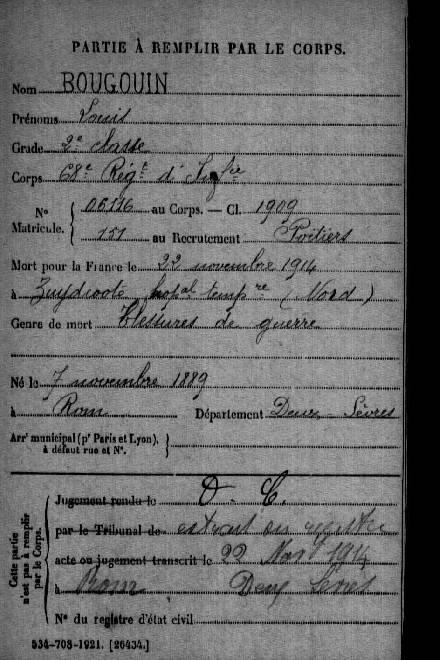 PARTIE À REMPLIR PAR LE CORPS.
Nom BOUGOUIN
Prénoms Louis
Grade 2e classe
Corps 68e Régt d'Inftie
No Matricule. 06116 au Corps. — Cl. 1909
151 au Recrutement Poitiers
Mort pour la France le 22 novembre 1914
à Zuydcoote hopal tempre (Nord)
Genre de mort Blessures de guerre
Né le 7 novembre 1889
à Rom Département Deux-Sèvres
Arrt municipal (pr Paris et Lyon), à défaut rue et No.
Cette partie n'est pas à remplir par le Corps.
Jugement rendu le D. C.
par le Tribunal de extrait du registre
acte ou jugement transcrit le 22 1914
à Rom Deux Sèvres
No du registre d'état civil
534-708-1921. [26434.]